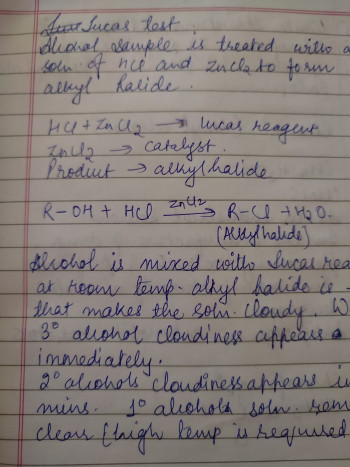 Lucas test
Alcohol sample is treated with a
soln of HCl and ZnCl2 to form
alkyl halide.
HCl + ZnCl2 → Lucas reagent
ZnCl2 → catalyst.
Product → alkyl halide
R-OH + HCl —ZnCl2→ R-Cl + H2O.
(Alkyl halide)
Alcohol is mixed with Lucas rea
at room temp. alkyl halide is
that makes the soln. cloudy. W
3° alcohol cloudiness appears a
immediately.
2° alcohols cloudiness appears i
mins. 1° alcohols soln. rem
clear (high temp is required